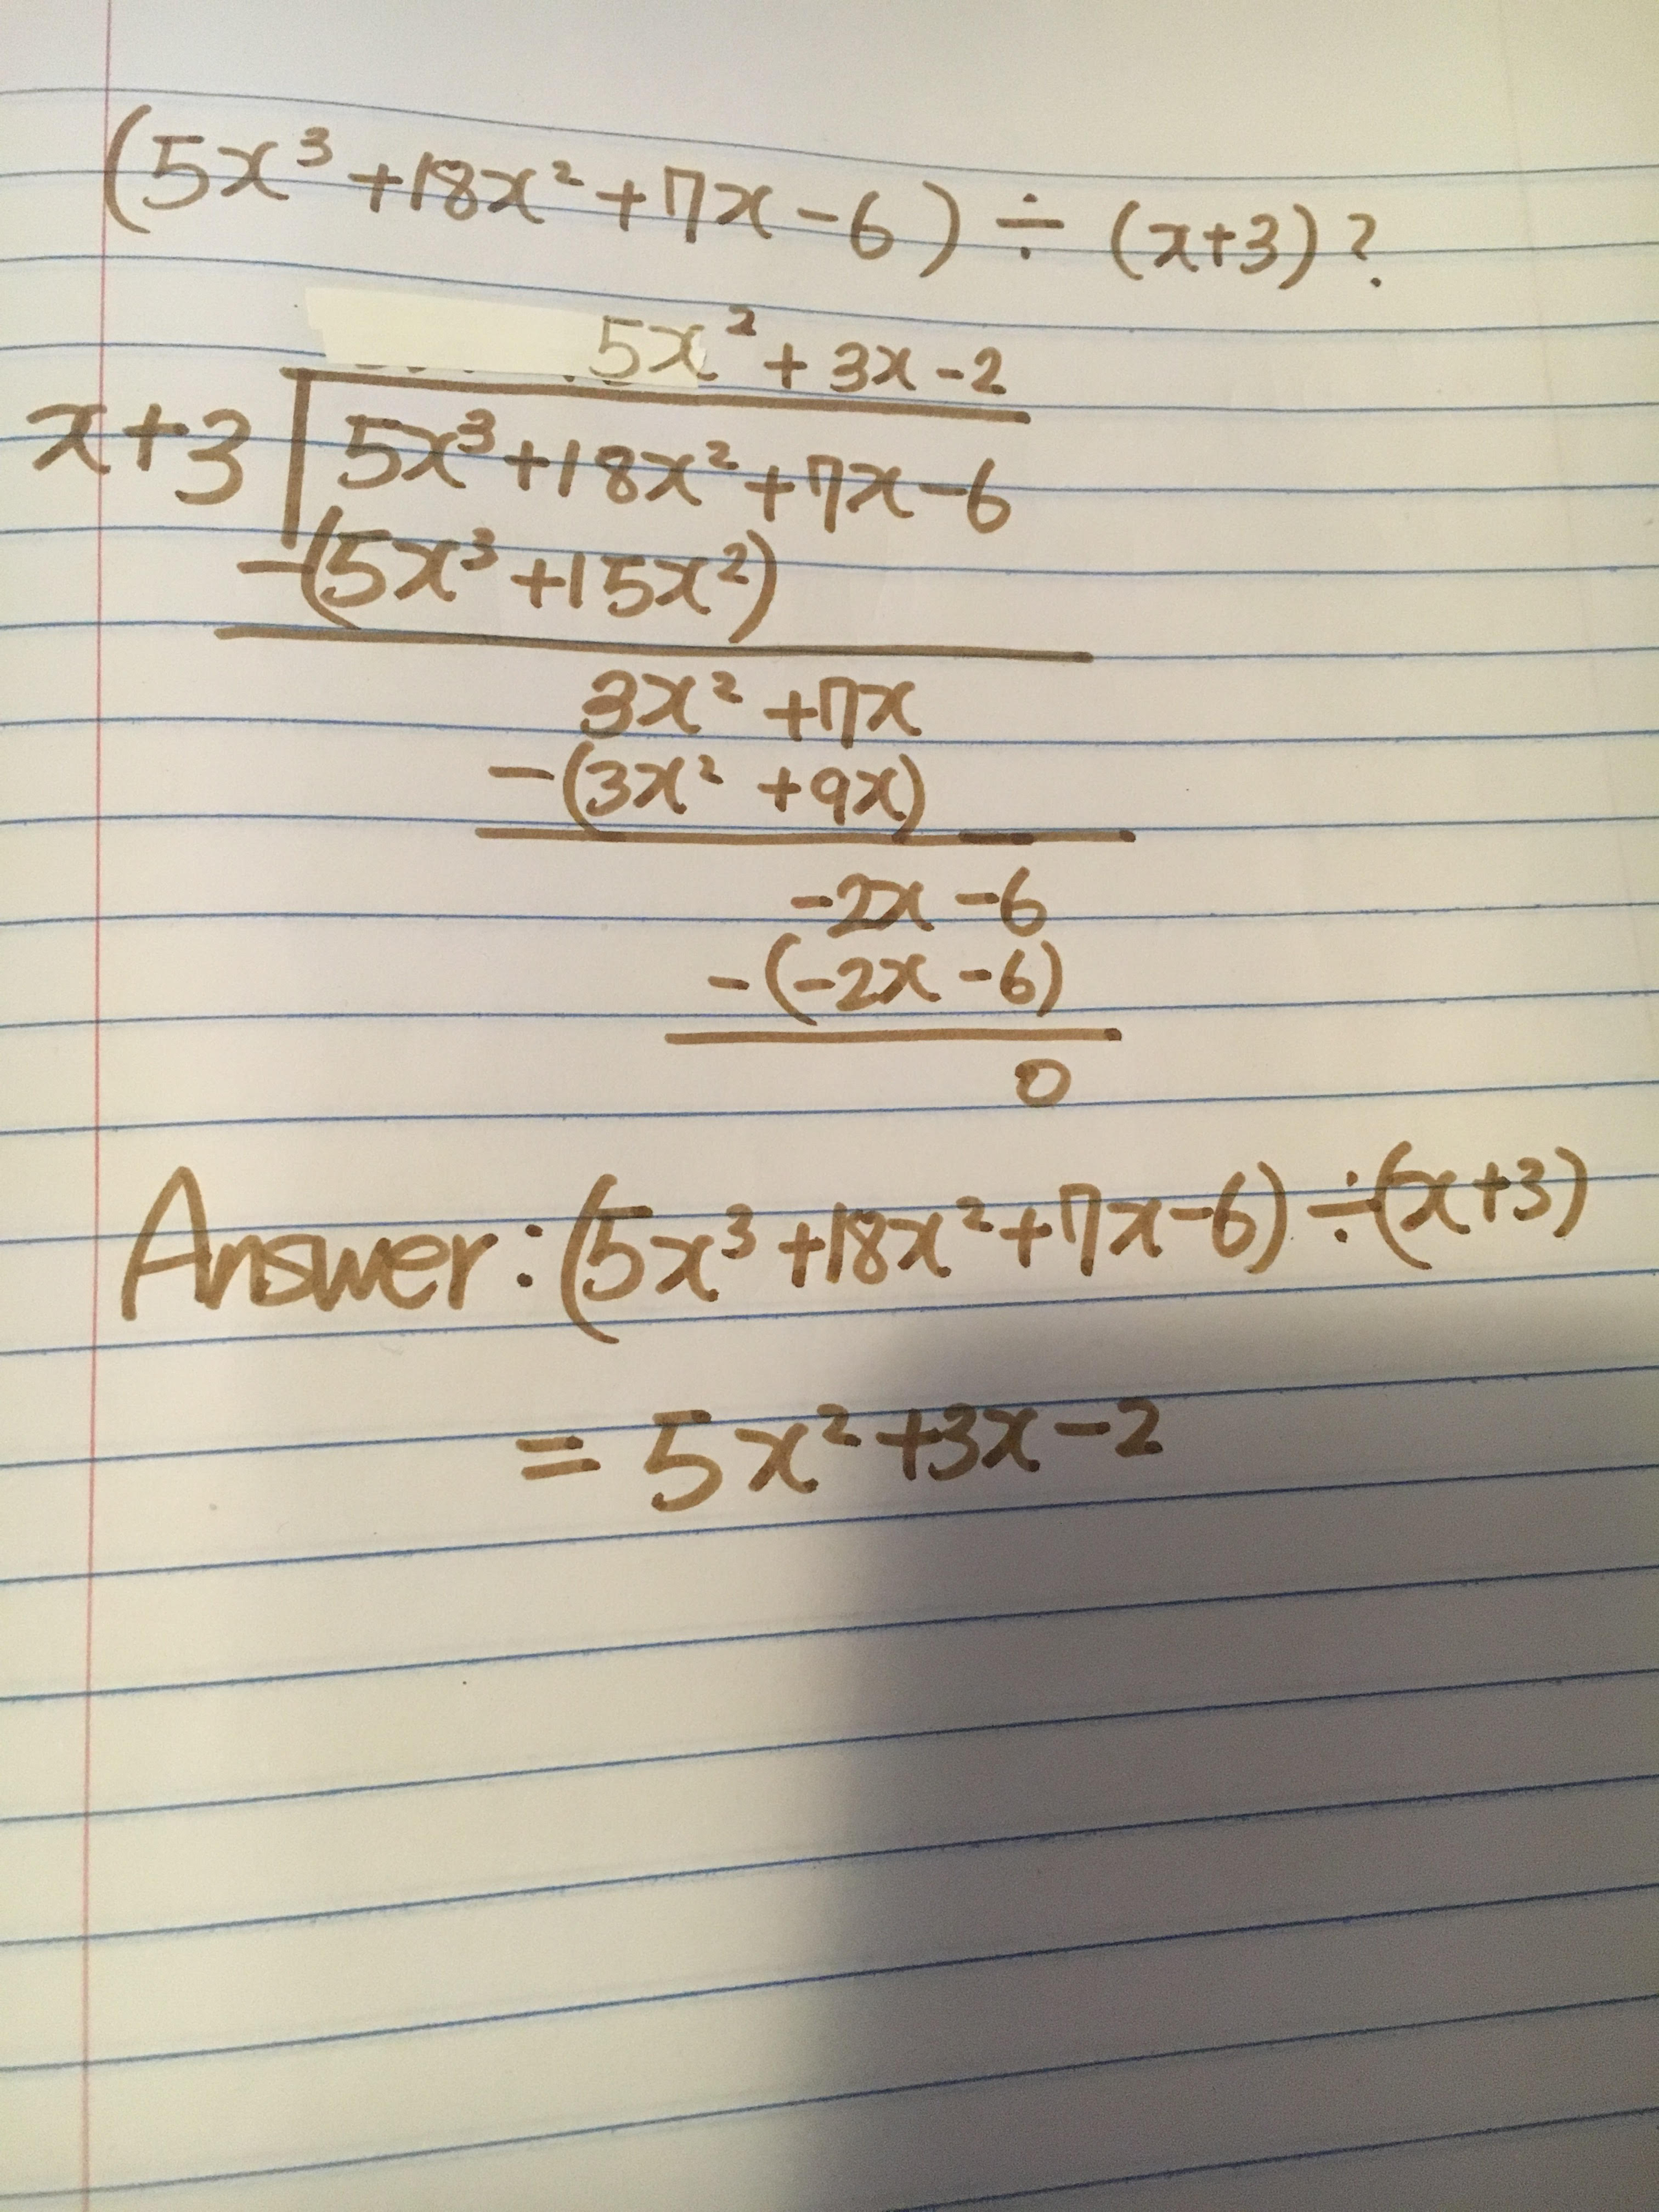 (5x³+18x²+7x-6) ÷ (x+3)?
5x²+3x-2
x+3 5x³+18x²+7x-6
-(5x³+15x²)
3x²+7x
-(3x²+9x)
-2x-6
-(-2x-6)
0
Answer: (5x³+18x²+7x-6)÷(x+3)
= 5x²+3x-2